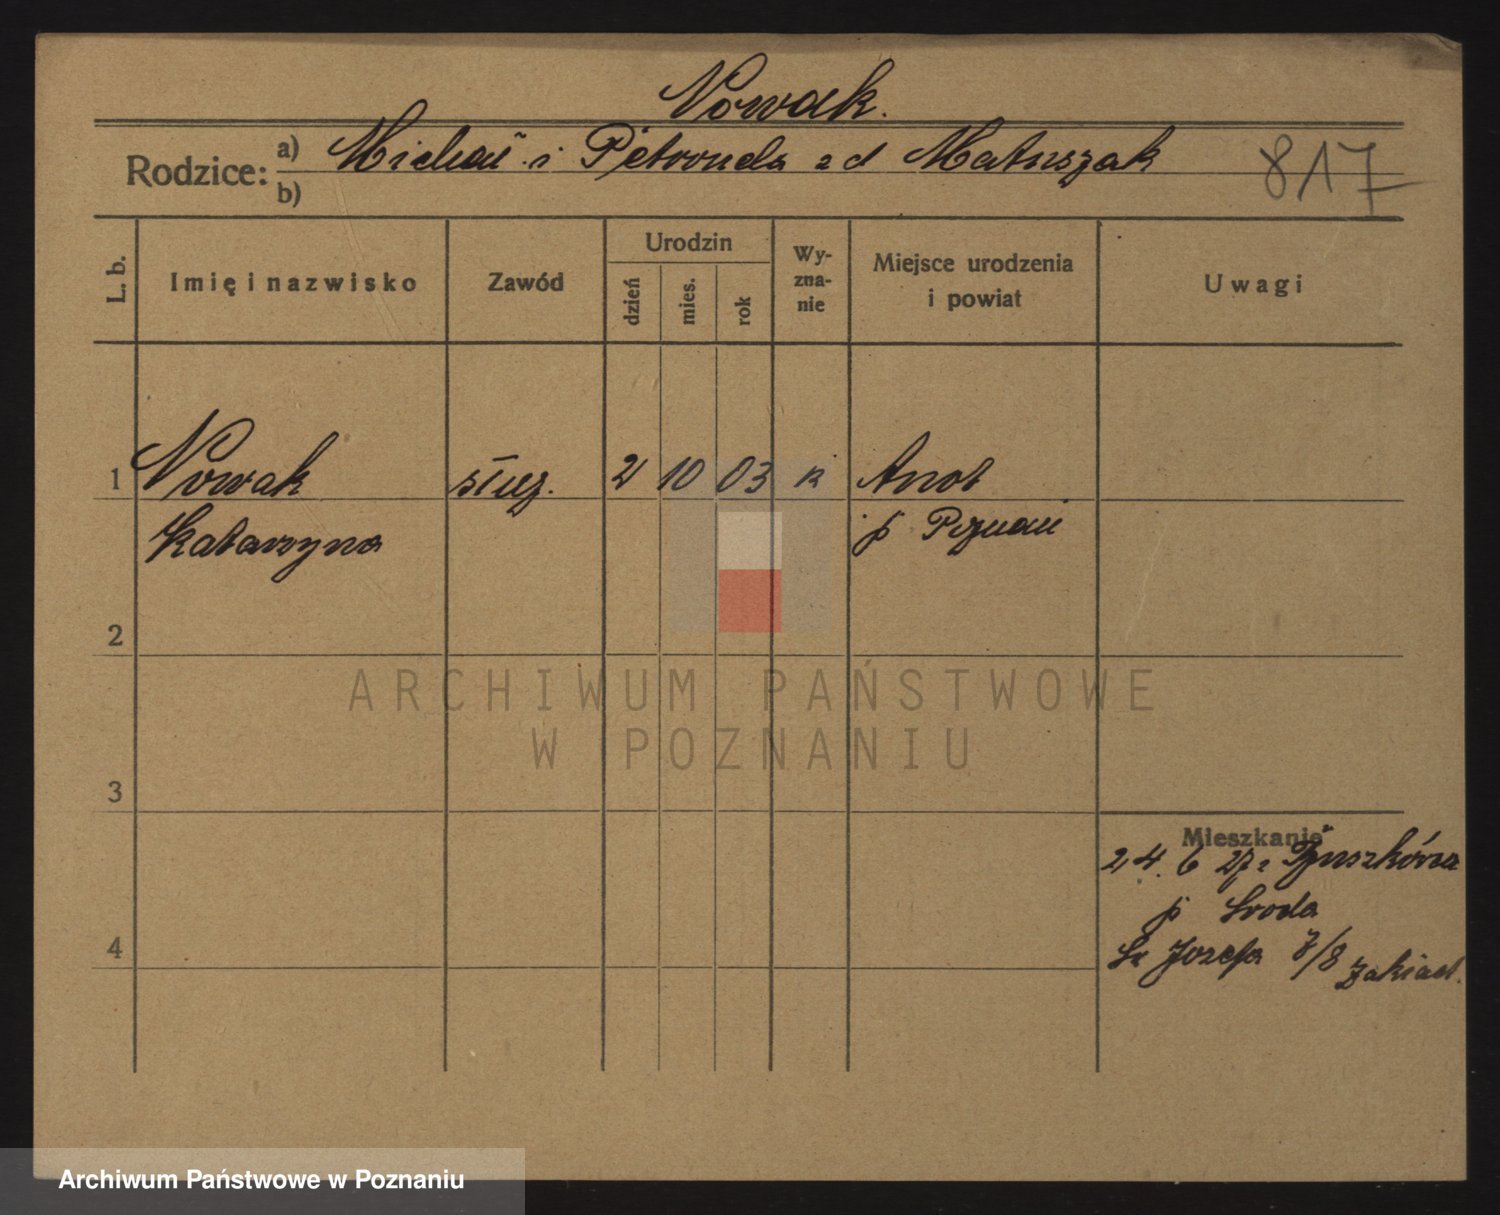 Nowak.
Rodzice: a) Michał i Petronela z d Matuszak 817
b)
L. b. Imię i nazwisko Zawód Urodzin dzień mies. rok Wy-zna-nie Miejsce urodzenia i powiat Uwagi
1 Nowak służ. 2 10 03 k
Katarzyna p Poznań
2
ARCHIWUM PAŃSTWOWE
W POZNANIU
3
Mieszkanie
24. 6 27 z
p Środa
4
Św Józefa 7/8 Zakład.
Archiwum Państwowe w Poznaniu